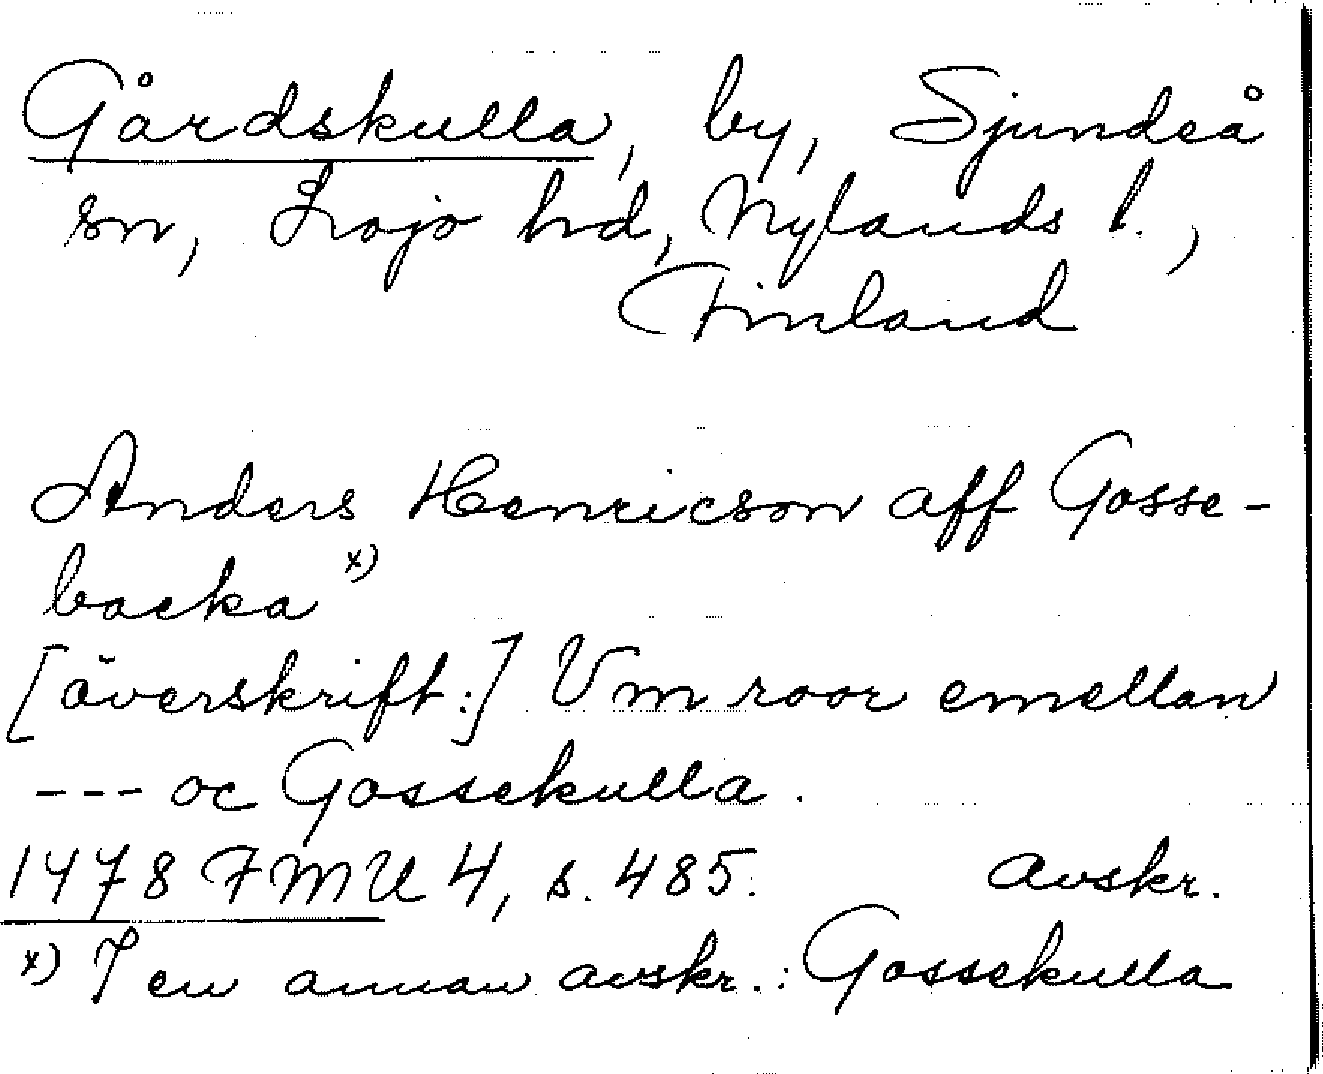 Gårdskulla, by, Sjundeå
sn, Lojo hd, Nylands l.,
Finland
Anders Henricson aff Gosse-
backa x)
[överskrift:] Vm roor emellan
--- oc Gossekulla.
1478 FMU 4, s. 485. avskr.
x) I en annan avskr.: Gossekulla